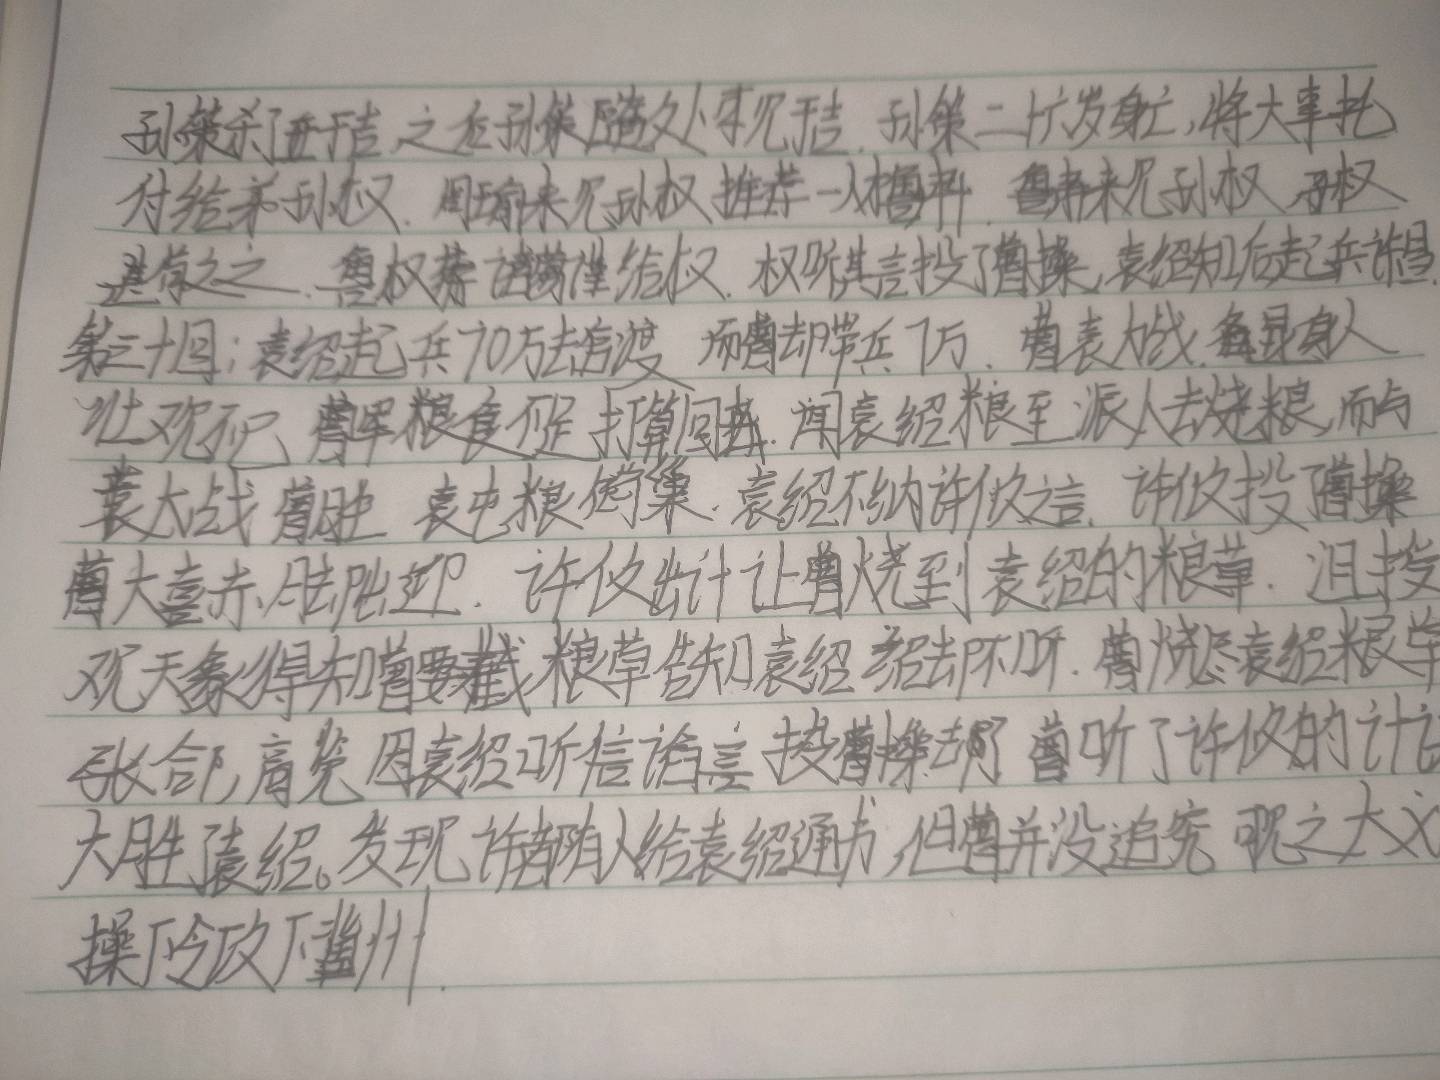 孙策杀了于吉.之后孙策随处可见于吉.孙策二十六岁身亡,将大事托
付给弟孙权.周瑜来见孙权推荐一人鲁肃.鲁肃来见孙权 孙权
之.鲁权荐诸葛谨给权.权听其言投了曹操,袁绍知后起兵许昌.
第三十回:袁绍起兵70万去官渡 而曹却带兵7万.曹袁大战.
曹军粮食不足打算回.闻袁绍粮至派人去烧粮,而与
袁大战曹胜 袁屯粮巢.袁绍不纳许攸之言.许攸投了曹操
曹大喜赤脚出迎.许攸出计让曹烧到袁绍的粮草.沮授
观天象得知曹要截粮草告知袁绍 绍却不听.曹烧尽袁绍粮草
张郃,高览因袁绍听信谗言投曹操去了曹听了许攸的计
大胜了袁绍。发现许都有人给袁绍通书,但曹并没追究
操下令攻下州.